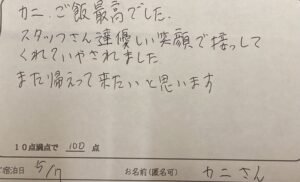 カニ、ご飯最高でした.
スタッフさん達優しい笑顔で接っして
くれていやされました
また帰えって来たいと思います
10点満点で 100 点
ご宿泊日 5/7 お名前(匿名可) カニさん